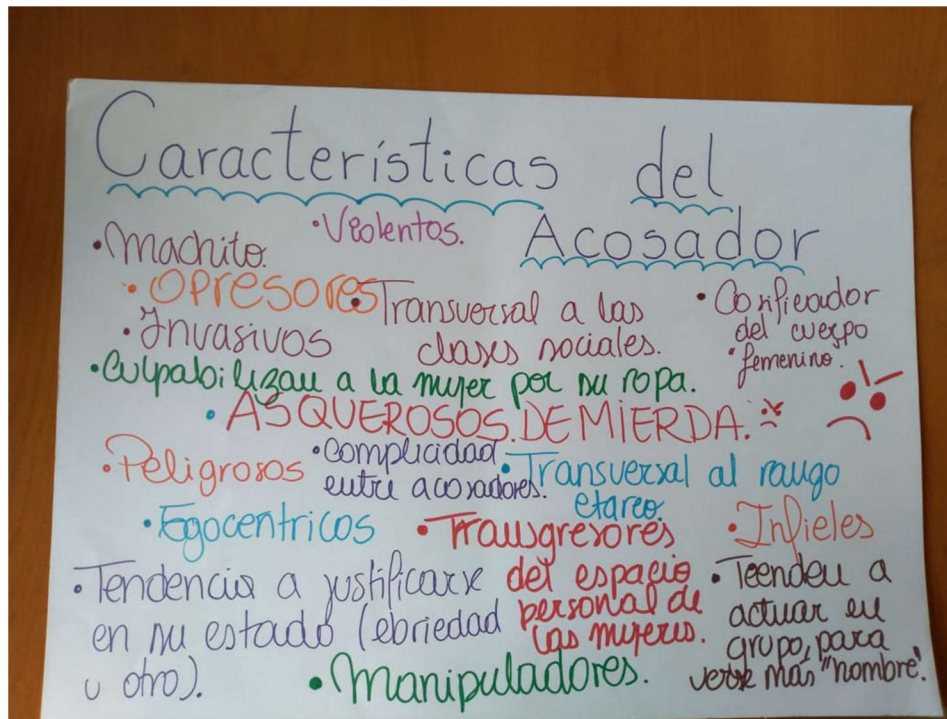 Características del
Acosador
• Machito.
• Violentos.
• OPRESORES
• Transversal a las
clases sociales.
• Cosificador
del cuerpo
femenino.
• Invasivos
• Culpabilizan a la mujer por su ropa.
• ASQUEROSOS DE MIERDA.
• Peligrosos
• complicidad
entre acosadores.
• Transversal al rango
etareo.
• Egocentricos
• Transgresores
del espacio
personal de
las mujeres.
• Infieles
• Tendencia a justificarse
en su estado (ebriedad
u otro).
• Manipuladores.
• Teenden a
actuar en
grupo, para
verse más "hombre".